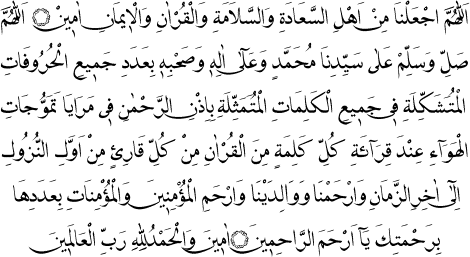 اَللّٰهُمَّ اجْعَلْنَا مِنْ اَهْلِ السَّعَادَةِ وَالسَّلَامَةِ وَالْقُرْاٰنِ وَالْاِيمَانِ اٰمِينَ ۞ اَللّٰهُمَّ
صَلِّ وَسَلِّمْ عَلٰى سَيِّدِنَا مُحَمَّدٍ وَعَلٰٓى اٰلِهٖ وَصَحْبِهٖ بِعَدَدِ جَمِيعِ الْحُرُوفَاتِ
الْمُتَشَكِّلَةِ فٖى جَمِيعِ الْكَلِمَاتِ الْمُتَمَثِّلَةِ بِاِذْنِ الرَّحْمٰنِ فٖى مَرَايَا تَمَوُّجَاتِ
الْهَوَٓاءِ عِنْدَ قِرَٓائَةِ كُلِّ كَلِمَةٍ مِنَ الْقُرْاٰنِ مِنْ كُلِّ قَارِئٍ مِنْ اَوَّلِ النُّزُولِ
اِلٰٓى اٰخِرِ الزَّمَانِ وَارْحَمْنَا وَوَالِدَيْنَا وَارْحَمِ الْمُؤْمِنٖينَ وَالْمُؤْمِنَاتِ بِعَدَدِهَا
بِرَحْمَتِكَ يَٓا اَرْحَمَ الرَّاحِمٖينَ ۞ اٰمٖينَ وَالْحَمْدُ لِلّٰهِ رَبِّ الْعَالَمٖينَ